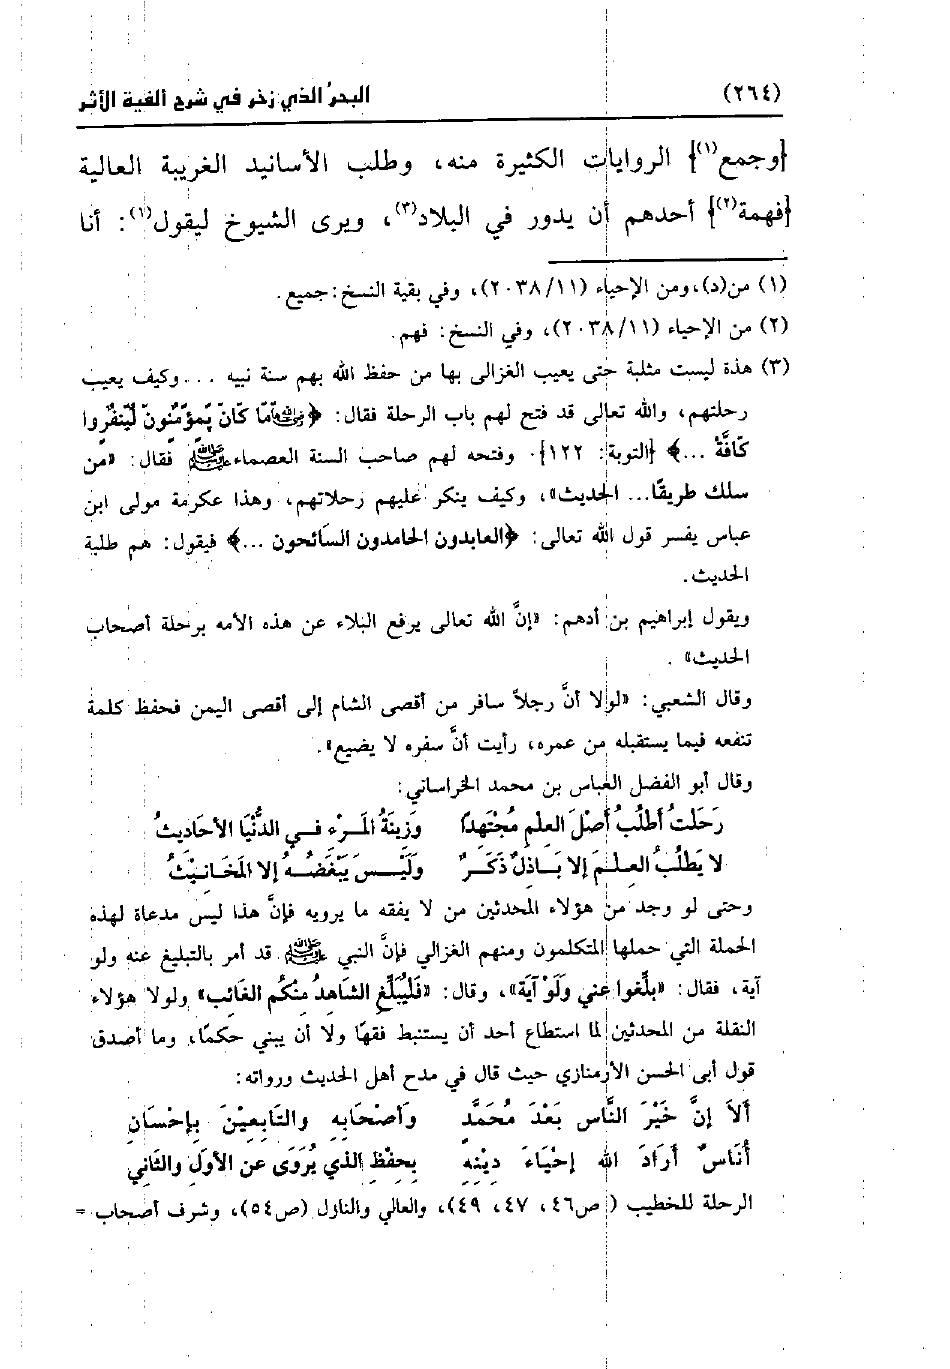 (٢٦٤) البحرُ الذي زخر في شرح ألفية الأثر
{وجمع(١)} الروايات الكثيرة منه، وطلب الأسانيد الغريبة العالية
{فهمة(٢)} أحدهم أن يدور في البلاد(٣)، ويرى الشيوخ ليقول(١): أنا
(١) من(د)، ومن الإحياء (٢٠٣٨/١١)، وفي بقية النسخ: جميع.
(٢) من الإحياء (٢٠٣٨/١١)، وفي النسخ: فهم.
(٣) هذة ليست مثلبة حتى يعيب الغزالى بها من حفظ الله بهم سنة نبيه ... وكيف يعيب
رحلتهم، والله تعالى قد فتح لهم باب الرحلة فقال: ﴿ كَانَ لِيَنفِرُوا
كَافَّةً ...﴾ {التوبة: ١٢٢}. وفتحه لهم صاحب السنة العصماء ﷺ فقال: «من
سلك طريقًا... الحديث»، وكيف ينكر عليهم رحلاتهم، وهذا عكرمة مولى ابن
عباس يفسر قول الله تعالى: ﴿العابدون الحامدون السائحون ...﴾ فيقول: هم طلبة
الحديث.
ويقول إبراهيم بن أدهم: «إنَّ الله تعالى يرفع البلاء عن هذه الأمه برحلة أصحاب
الحديث» .
وقال الشعبي: «لولا أنَّ رجلاً سافر من أقصى الشام إلى أقصى اليمن فحفظ كلمة
تنفعه فيما يستقبله من عمره، رأيت أنَّ سفره لا يضيع».
وقال أبو الفضل العباس بن محمد الخراساني:
رَحَلتُ أطلُبُ أصْلَ العِلمِ مُجتَهِدًا وَزِينَةُ المَرْءِ فِي الدُّنْيَا الأحَاديثُ
لا يَطلُبُ العِلمَ إلا بَاذِلٌ ذَكَرٌ وَلَيْسَ يَبْغَضُهُ إلا المَخَانِيْثُ
وحتى لو وجد من هؤلاء المحدثين من لا يفقه ما يرويه فإنَّ هذا ليس مدعاة لهذه
الحملة التي حملها المتكلمون ومنهم الغزالي فإنَّ النبي ﷺ قد أمر بالتبليغ عنه ولو
آية، فقال: «بلِّغوا عني ولَوْ آيَة»، وقال: «فَلْيُبَلِّغِ الشاهدُ منكُم الغَائب» ولولا هؤلاء
النقلة من المحدثين لما استطاع أحد أن يستنبط فقهًا ولا أن يبني حكمًا، وما أصدق
قول أبى الحسن الأرمنازي حيث قال في مدح أهل الحديث ورواته:
ألاَ إنَّ خَيْرَ النَّاس بَعْدَ مُحَمَّدٍ وَأصْحَابِهِ والتَابِعِيْنَ بِإحْسَانِ
أُنَاسٌ أرَادَ الله إحْيَاءَ دِيْنِهِ بِحِفْظِ الذي يُرْوَى عن الأوَلِ والثَاني
الرحلة للخطيب (ص٤٦، ٤٧، ٤٩)، والعالي والنازل (ص٥٤)، وشرف أصحاب =